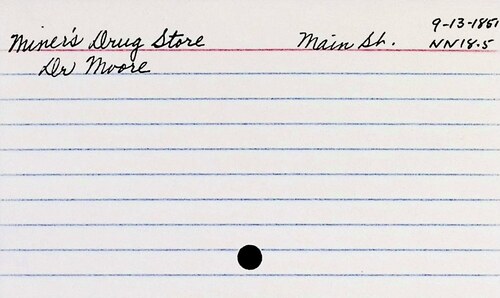 Miner's Drug Store Main St. 9-13-1851
NN18.5
Dr Moore